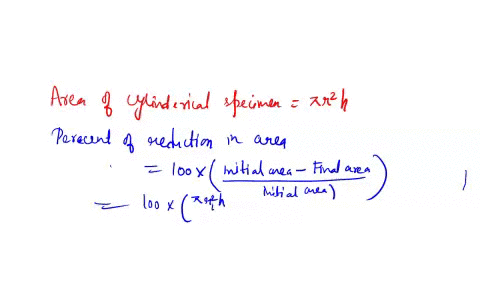 Area of cylinderical specimen = πr²h
Percent of reduction in area
= 100 × ( Initial area – Final area / Initial area) )
= 100 × ( πr₁²h